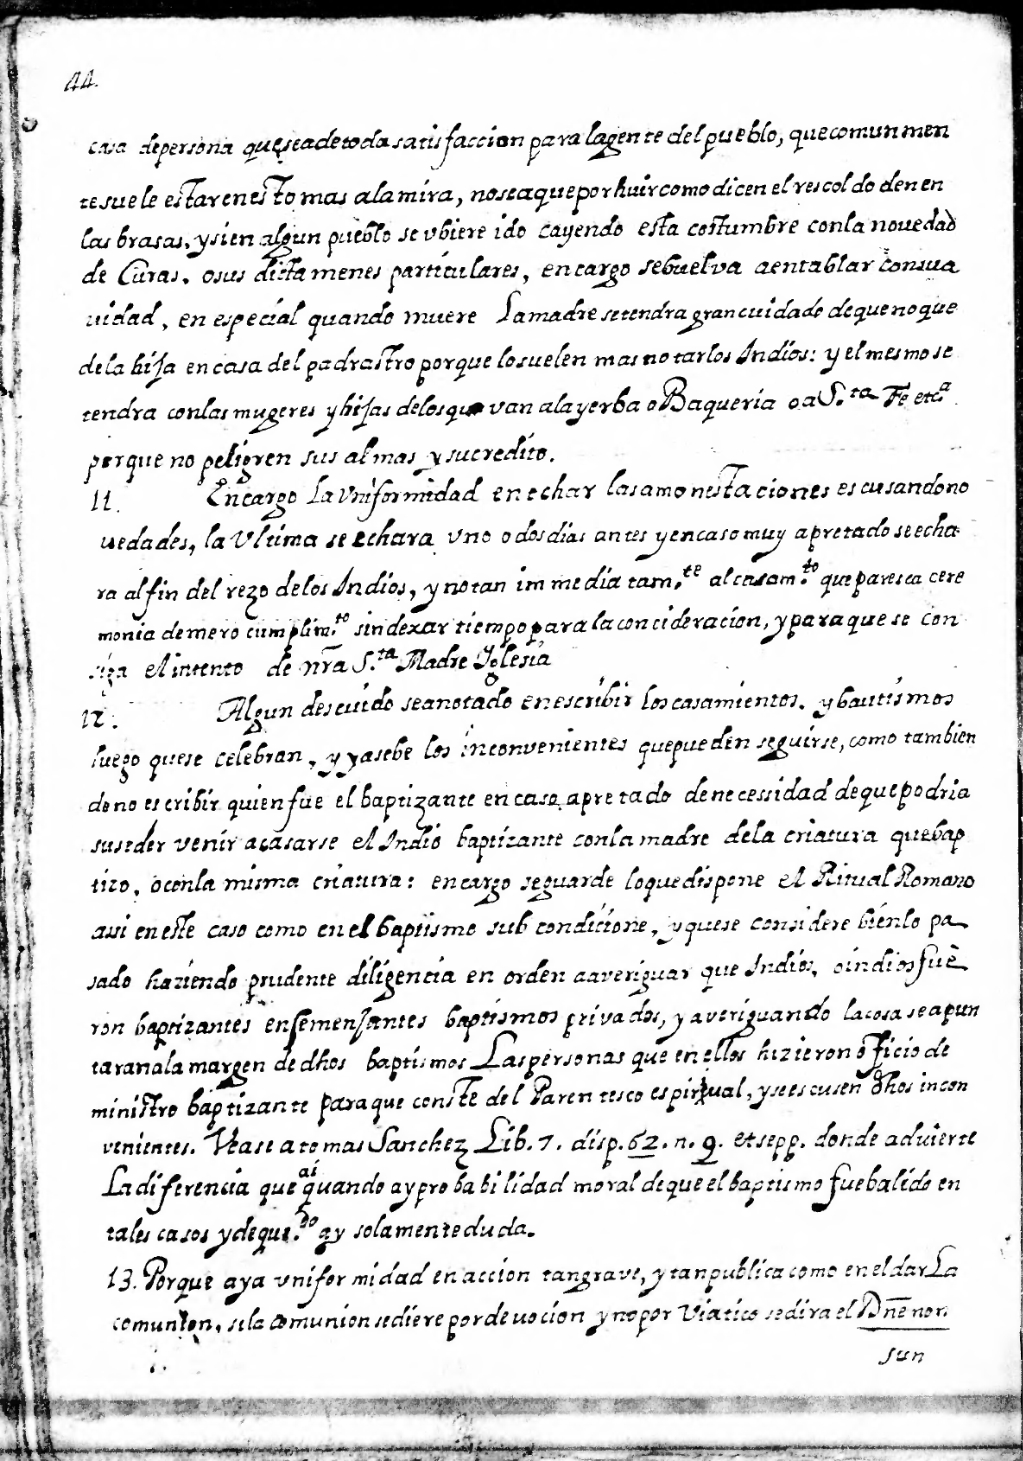 44.
casa de persona que sea de toda satisfaccion para la gente del pueblo, que comunmen
te suele estar en esto mas ala mira, no sea que por huir como dicen el rescoldo den en
las brasas. y si en algun pueblo se vbiere ido cayendo esta costumbre con la novedad
de Curas. o sus dictamenes particulares, encargo se buelva a entablar con sua
vidad, en especial quando muere La madre se tendra gran cuidado de que no que
de la hija en casa del padrastro porque lo suelen mas notar los Indios: y el mesmo se
tendra con las mugeres y hijas de los que van ala yerba o Baqueria o a S.ta Fe etc.a
porque no peligren sus almas y su credito.
11. Encargo La vniformidad en echar las amonestaciones escusando no
vedades, la Vltima se echara vno o dos dias antes y en caso muy apretado se echa
ra al fin del rezo de los Indios, y no tan immediatam.te al casam.to que paresca cere
monia de mero cumplim.to sin dexar tiempo para la concideracion, y para que se con
siga el intento de nr̃a S.ta Madre Iglesia
12. Algun descuido se a notado en escribir los casamientos. y bautismos
luego que se celebran, y ya se be los inconvenientes que pueden seguirse, como tambien
de no escribir quien fue el baptizante en caso apretado de necessidad de que podria
suseder venir a casarse el Indio baptizante con la madre de la criatura que bap
tizo, o con la misma criatura: encargo se guarde lo que dispone el Ritual Romano
assi en este caso como en el baptismo sub condicione, y que se considere bien lo pa
sado haziendo prudente diligencia en orden a averiguar que Indios, o indios fue
ron baptizantes en semenjantes baptismos privados, y averiguando la cosa se apun
taran ala margen de dhos baptismos Las personas que en ellos hizieron officio de
ministro baptizante para que conste del Parentesco espiritual, y se escusen dhos incon
venientes. Vease a tomas Sanchez Lib. 7. disp. 62. n. 9. et sepp. donde advierte
La diferencia que ai quando ay probabilidad moral de que el baptismo fue balido en
tales casos y de que q.do ay solamente duda.
13. Porque aya vniformidad en accion tan grave, y tan publica como en el dar La
comunion, si la comunion se diere por devocion y no por Viatico se dira el Dñe non
sun